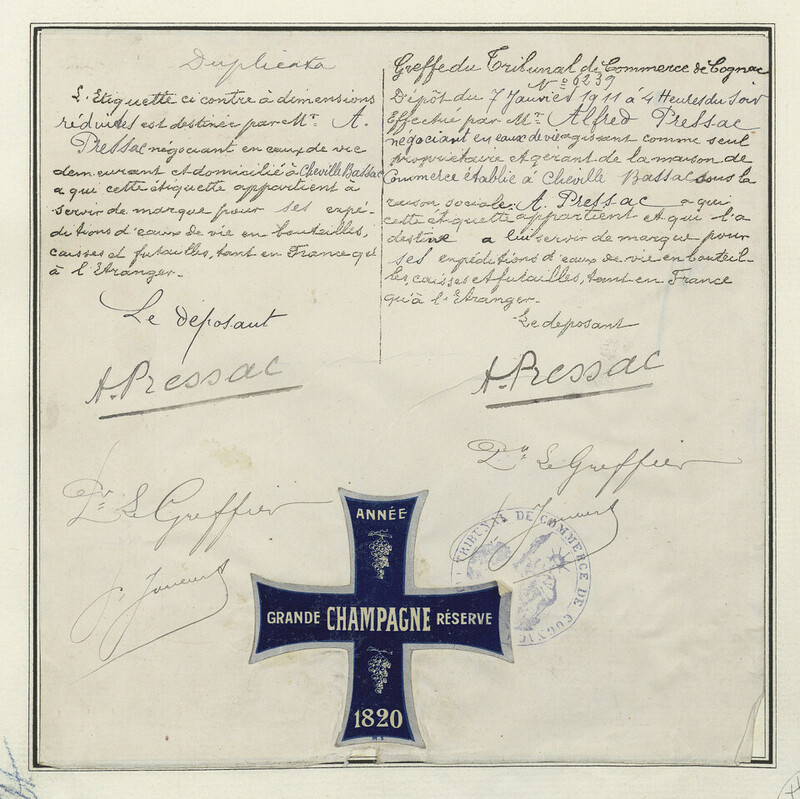 Duplicata
L'Etiquette ci contre à dimensions
réduites est destinée par Mr. A.
Pressac négociant en eaux de vie
demeurant et domicilié à Cheville Bassac
a qui cette étiquette appartient à
servir de marque pour ses expé-
ditions d'eaux de vie en bouteilles,
caisses et futailles, tant en France qu'
à l'Etranger.
Le déposant
A. Pressac
Pr. Le Greffier
Greffe du Tribunal de Commerce de Cognac
No 6239
Dépôt du 7 Janvier 1911 à 4 Heures du Soir
Effectué par Mr. Alfred Pressac
négociant en eaux de vie agissant comme seul
propriétaire et gérant de la maison de
Commerce établie à Cheville Bassac sous la
raison sociale: A. Pressac a qui
cette étiquette appartient et qui l'a
destiné a lui servir de marque pour
ses expéditions d'eaux de vie en bouteil-
les, caisses et futailles, tant en France
qu'à l'Etranger.
Le deposant
A. Pressac
Pr. Le Greffier
TRIBUNAL DE COMMERCE DE COGNAC
ANNÉE
GRANDE CHAMPAGNE RÉSERVE
1820